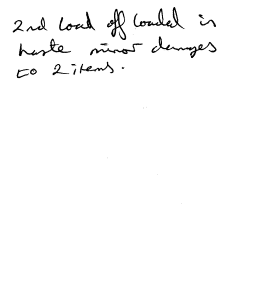 2nd load off loaded in
haste minor damages
to 2 items.